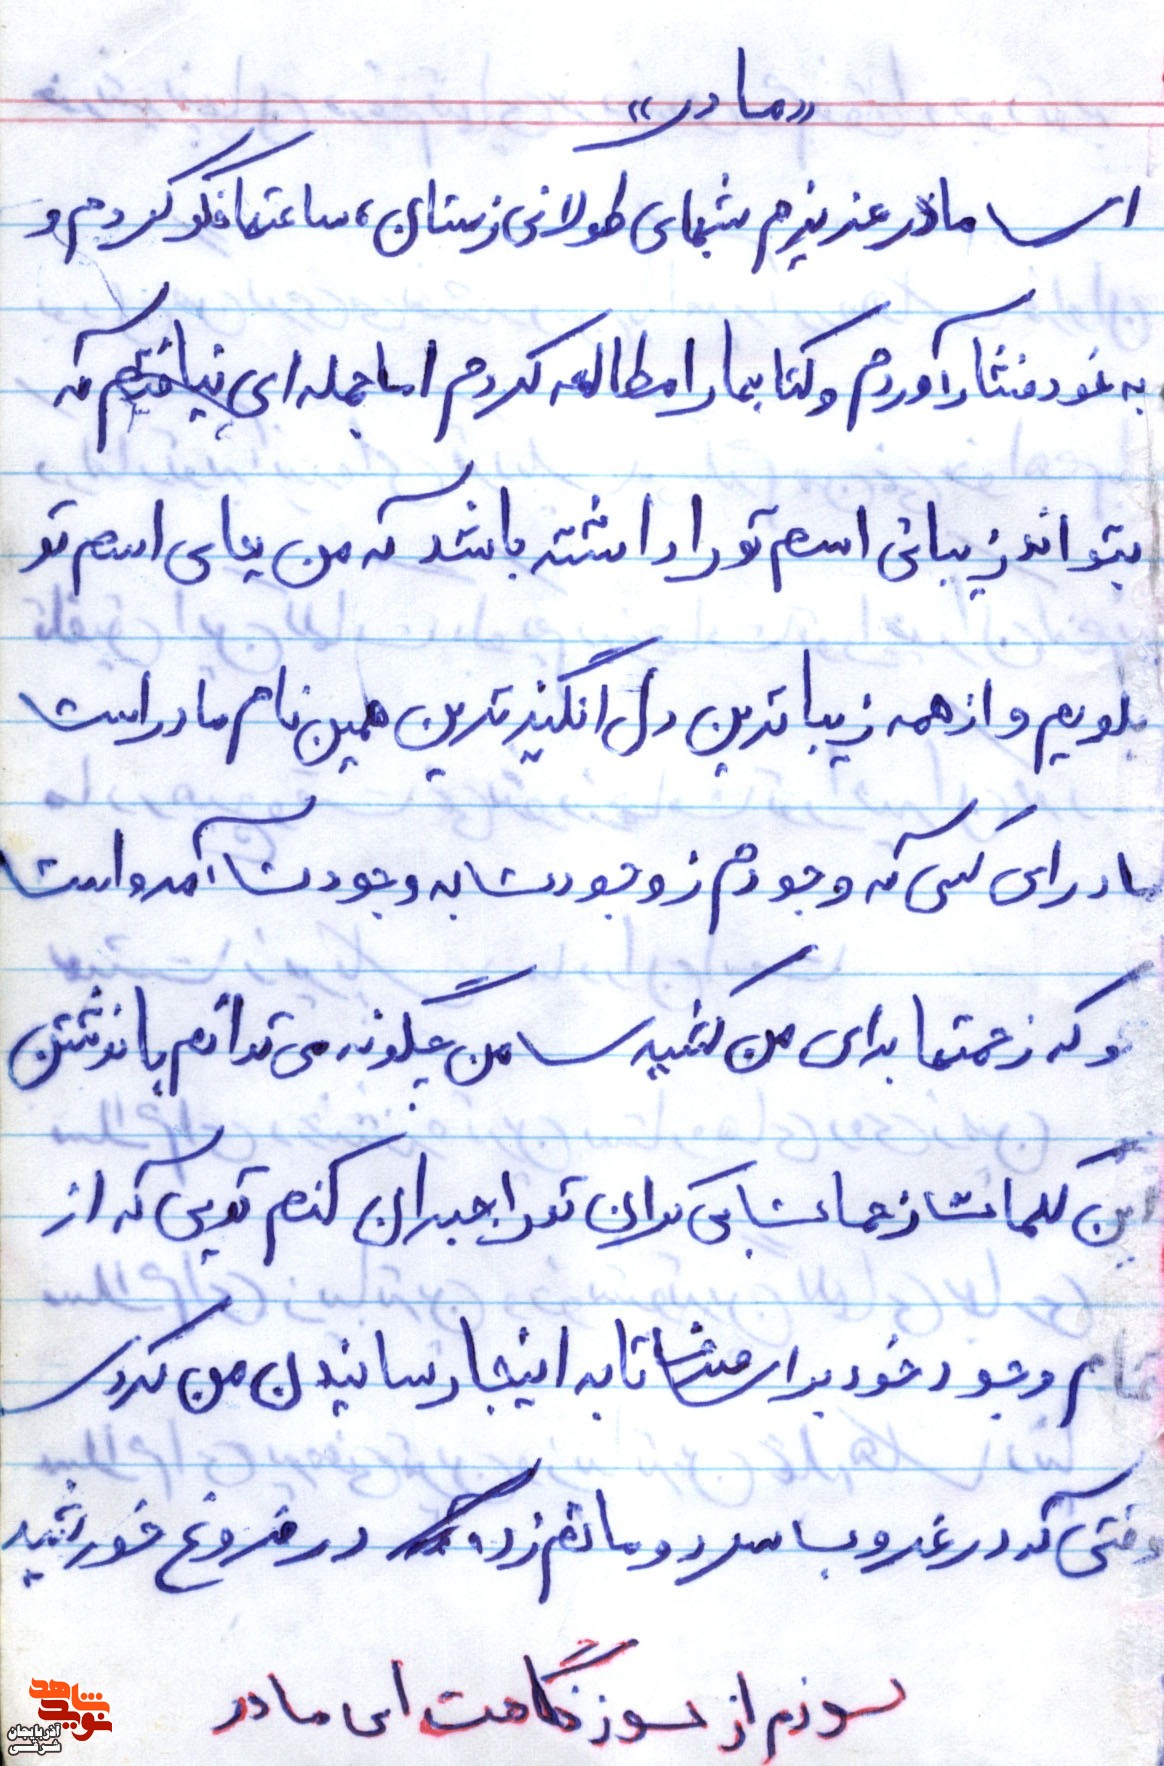 «مادر»
است مادر عزیزم شبهای طولانی زمستان، ساعتها فکر کردم و
به خود فشار آوردم و کتابها را مطالعه کردم اما جمله ای نیافتم که
بتواند زیبائی اسم تو را داشته باشد که من بجای اسم تو
بگویم و از همه زیباترین دل انگیزترین همین نام مادر است
مادر ای کسی که وجودم ز وجودت به وجودت آمده است
تو که زحمتها برای من کشیده ست من چگونه می توانم با نوشتن
این کلمات زحمات بی کران تو را جبران کنم تویی که از
تمام وجود خود برای تا به اینجا رسانیدن من کردی
وقتی که در غروب سرد و ماتم زده در فروغ خورشید
سوزم از سوز نگاهت ای مادر
نوید شاهد
آذربایجان
شرقی